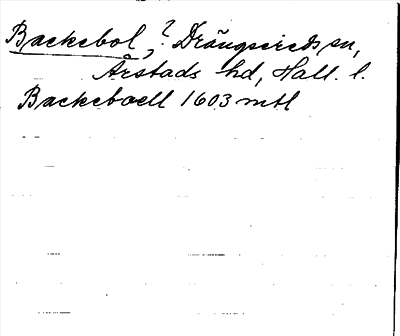 Backebol, ? Drängsereds sn,
Årstads hd, Hall. l.
Backeboell 1603 mtl